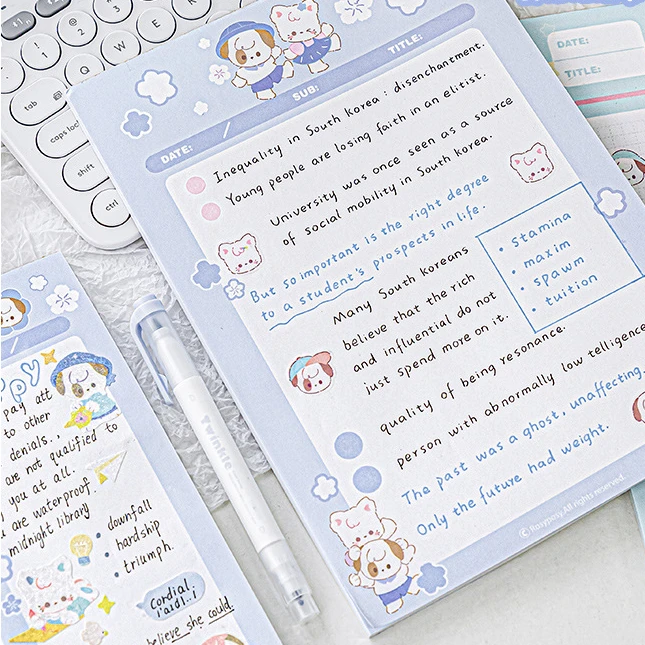 tab
caps lock
shift
ctrl
1
2
3
4
Q
W
E
R
A
S
D
Z
X
DATE:
/
SUB:
TITLE:
Inequality in South Korea : disenchantment.
Young people are losing faith in an elitist.
University was once seen as a source
of social mobility in South Korea.
But so important is the right degree
to a student's prospects in life.
Many South Koreans
believe that the rich
and influential do not
just spend more on it.
• Stamina
• maxim
• spawm
• tuition
quality of being resonance.
person with abnormally low telligence
The past was a ghost, unaffecting.
Only the future had weight.
© Rosyposy.All rights reserved.
DATE:
TITLE:
Twinkle
ppy
pay att
to other
denials.,
are not qualified to
you at all.
u are waterproof.
midnight library
• downfall
• hardship
• triumph.
Cordial.
believe she could